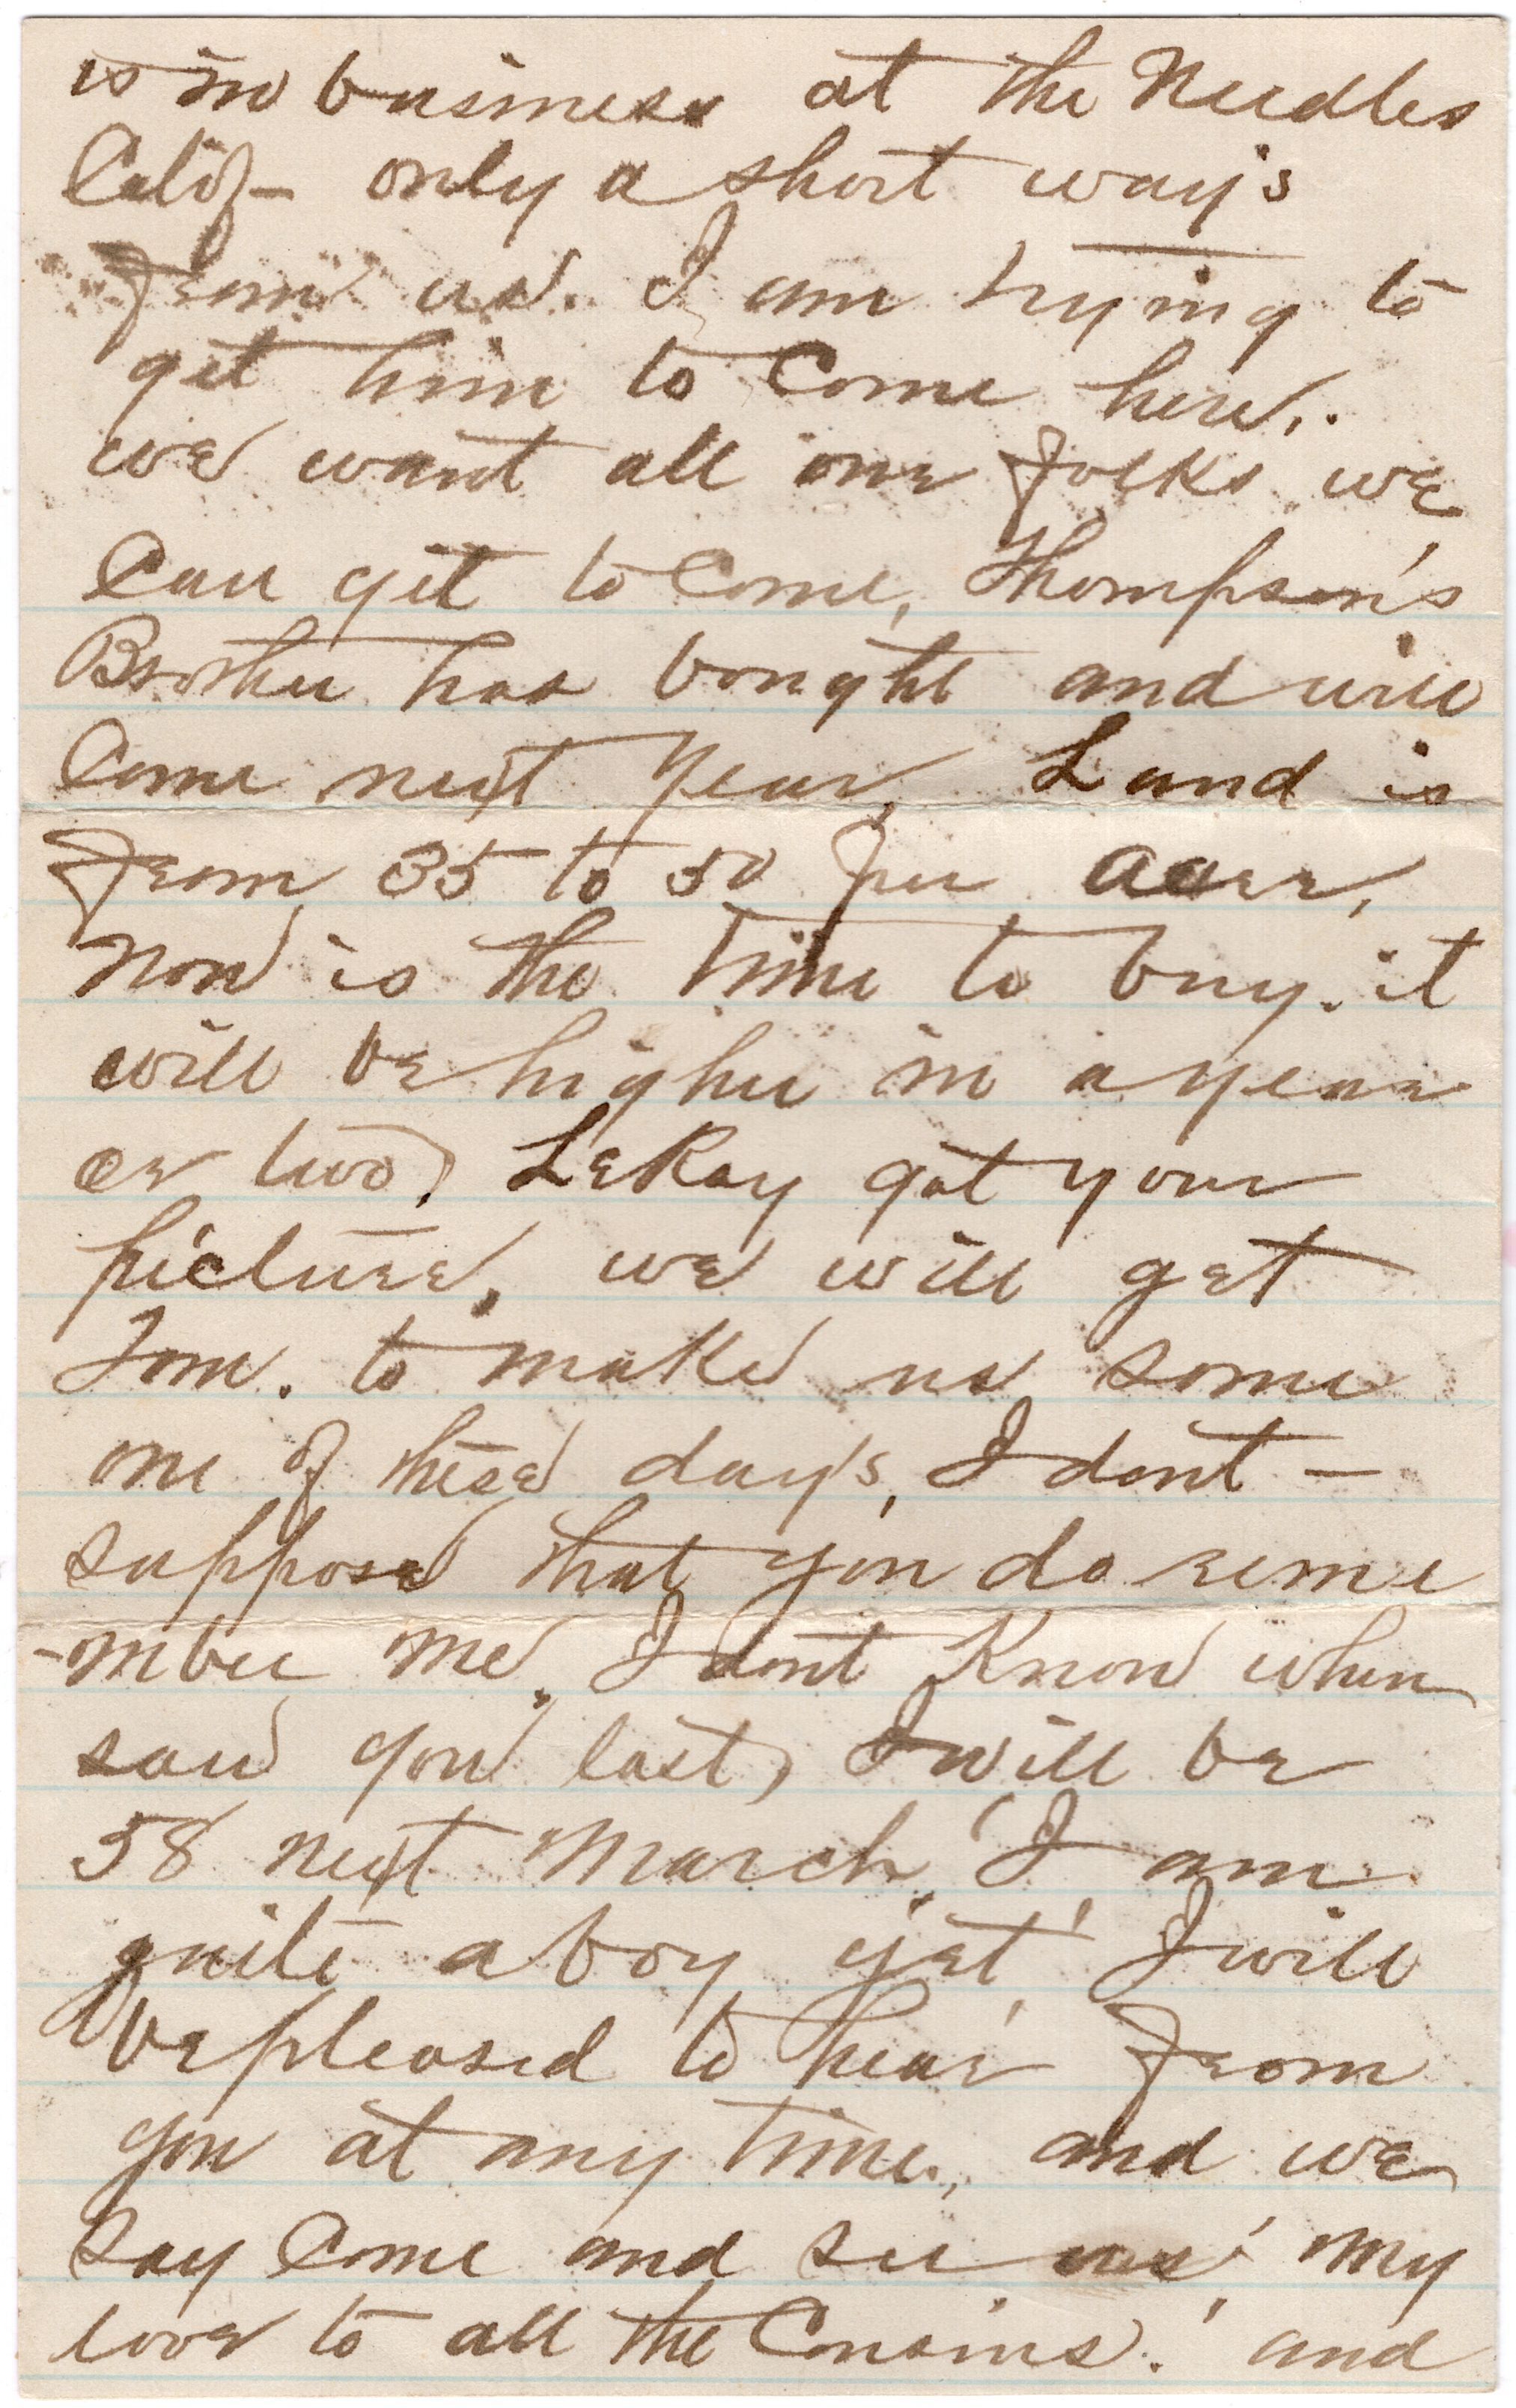 is in business at the Needles
Calif - only a short way's
from us. I am trying to
get him to Come here,.
we want all our folks we
Can get to Come, Thompson's
Brother has bought and will
Come next year, Land is
from 35 to 50 per acer,
Now is the time to buy. it
will be higher in a year
or two, LeRay got your
picture, we will get
Tom. to make us some
one of these day's, I dont -
suppose that you do reme
-mber me, I dont Know when
saw you last, I will be
58 next March, I am
quite a boy yet, I will
be pleased to hear from
you at any time, and we
say Come and see us, my
love to all the Cousins. and